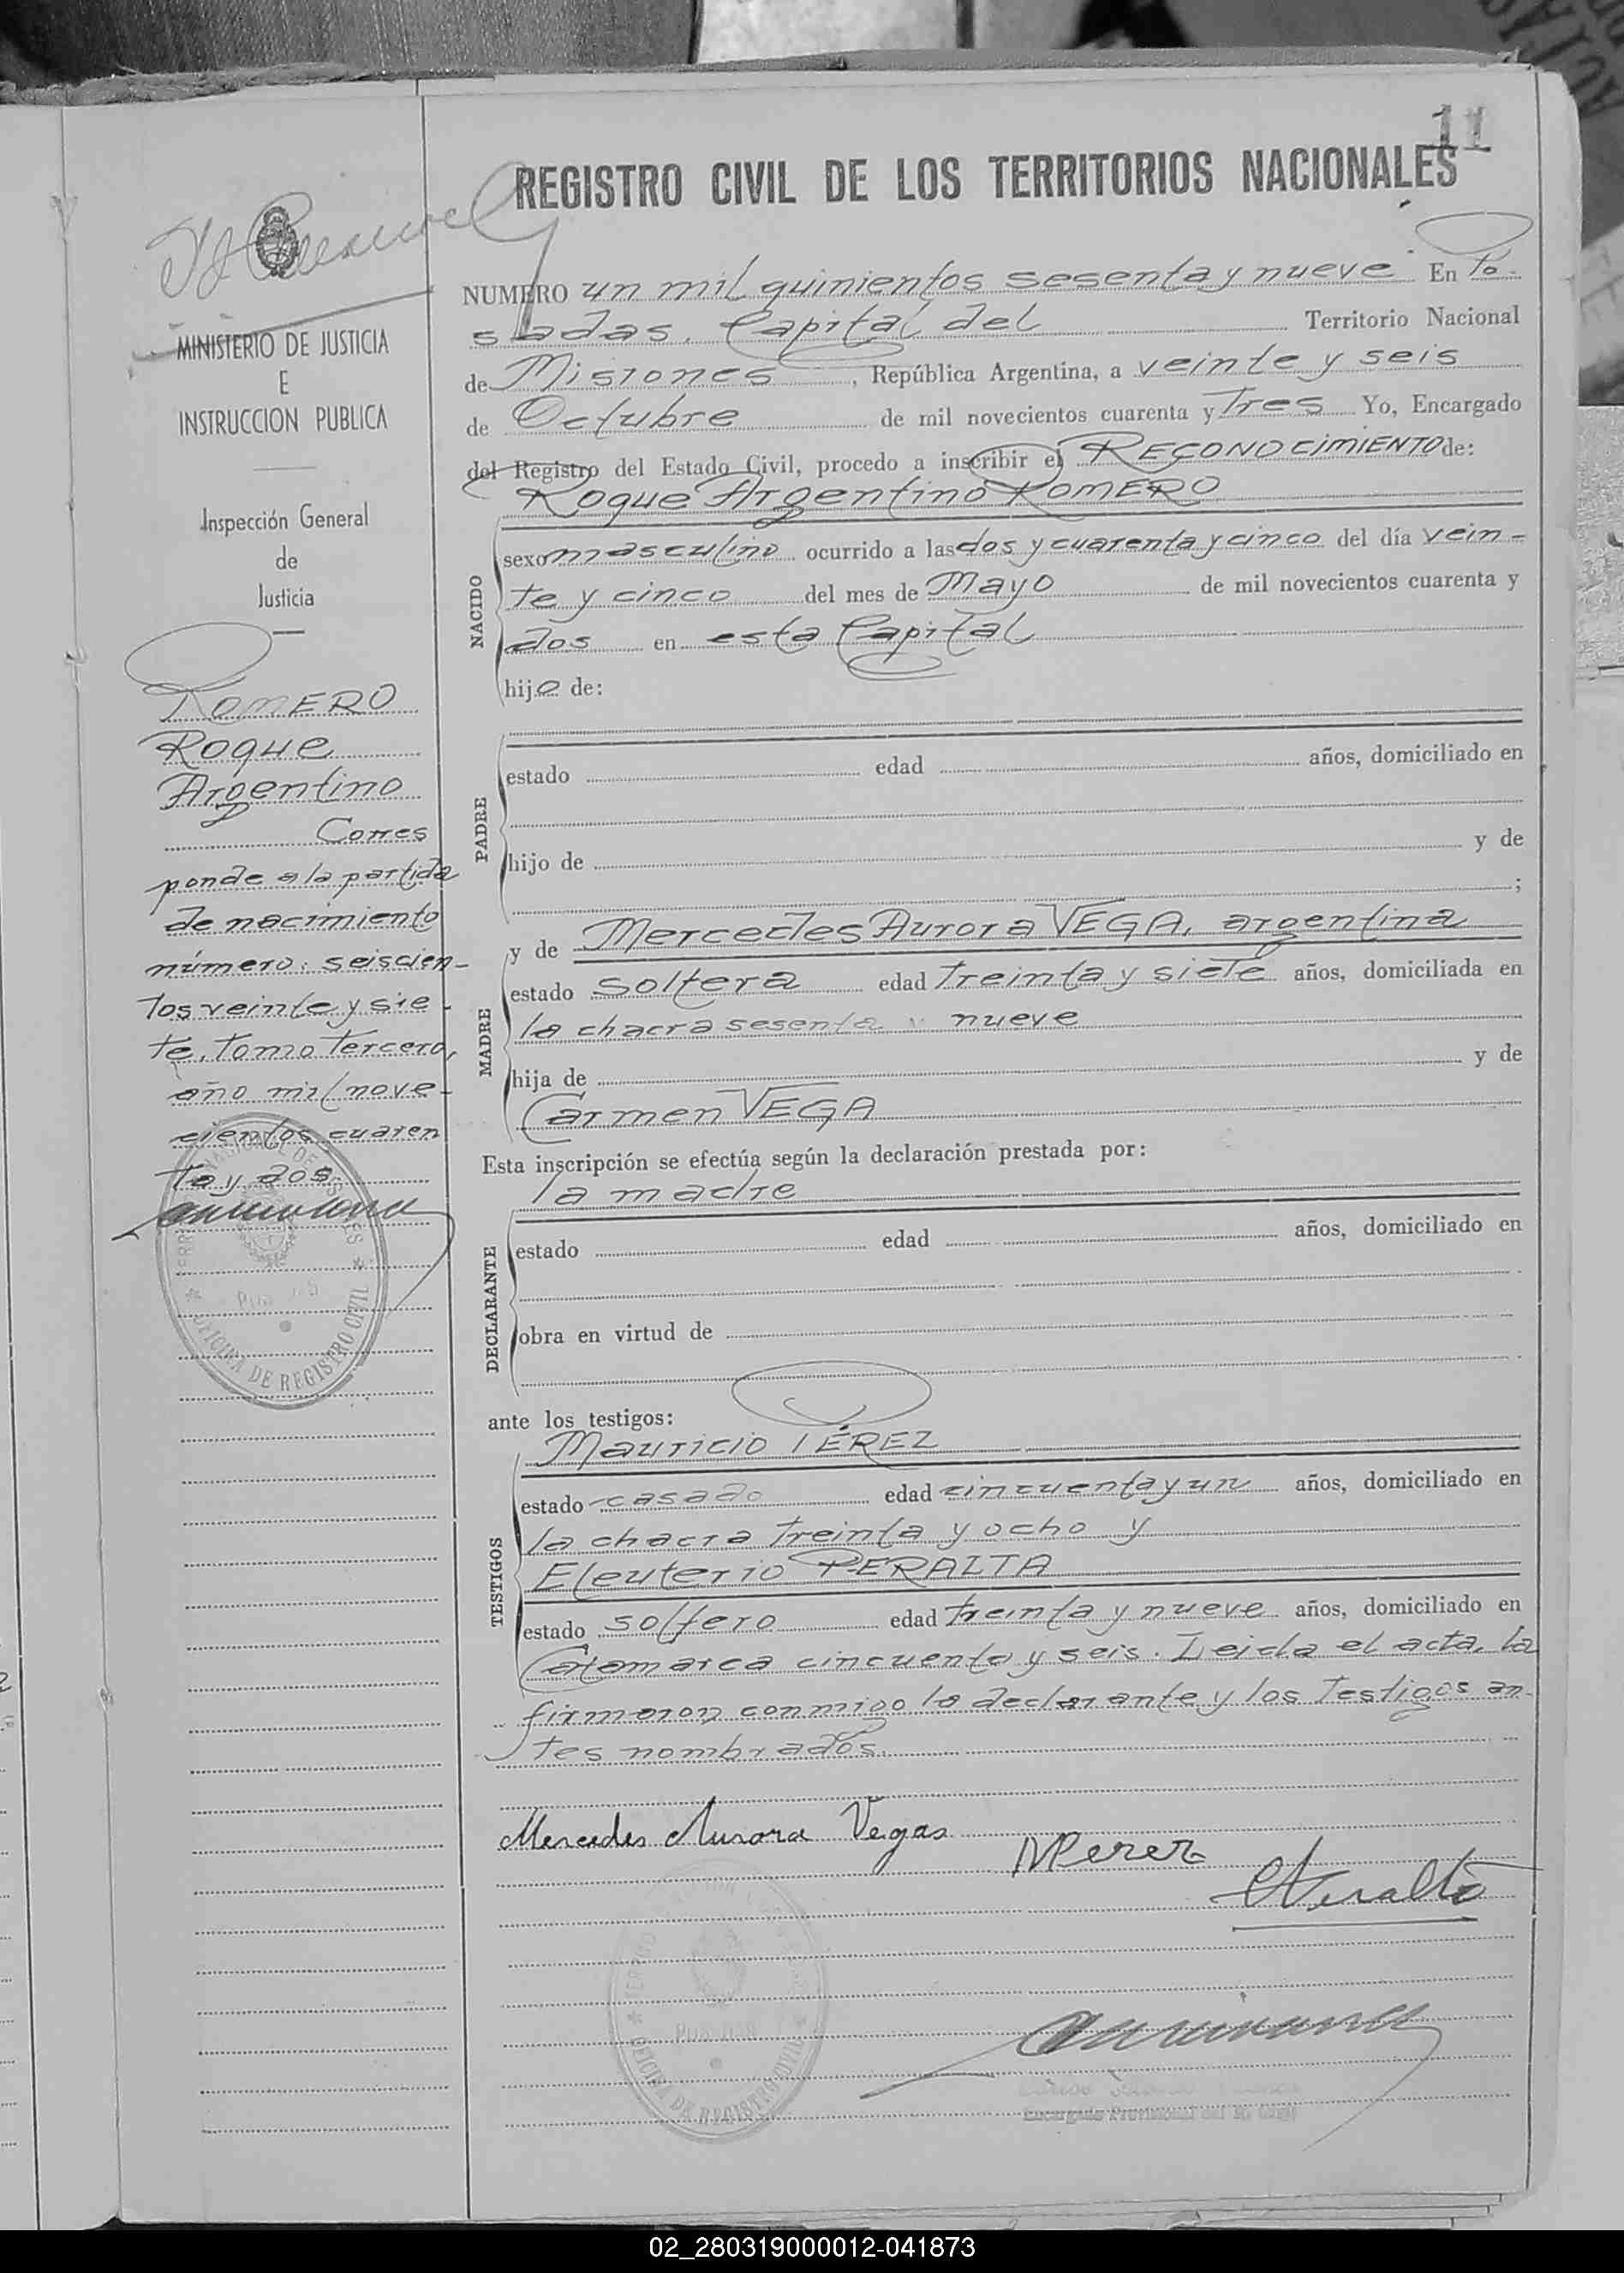 11
REGISTRO CIVIL DE LOS TERRITORIOS NACIONALES
MINISTERIO DE JUSTICIA
E
INSTRUCCION PUBLICA
Inspección General
de
Justicia
ROMERO
Roque
Argentino
Corres
ponde a la partida
de nacimiento
número: seiscien-
tos veinte y sie-
te, Tomo Tercero,
año mil nove-
cientos cuaren
ta y dos.
NUMERO un mil quinientos sesenta y nueve En Po-
sadas, Capital del Territorio Nacional
de Misiones, República Argentina, a veinte y seis
de Octubre de mil novecientos cuarenta y Tres Yo, Encargado
del Registro del Estado Civil, procedo a inscribir el RECONOCIMIENTO de:
Roque Argentino ROMERO
NACIDO
sexo masculino ocurrido a las dos y cuarenta y cinco del día vein-
te y cinco del mes de Mayo de mil novecientos cuarenta y
dos en esta Capital
hijo de:
PADRE
estado edad años, domiciliado en
hijo de y de
;
MADRE
y de Mercedes Aurora VEGA, argentina
estado soltera edad treinta y siete años, domiciliada en
la chacra sesenta y nueve
hija de y de
Carmen VEGA
Esta inscripción se efectúa según la declaración prestada por:
la madre
DECLARANTE
estado edad años, domiciliado en
obra en virtud de
ante los testigos:
TESTIGOS
Mauricio PÉREZ
estado casado edad cincuenta y un años, domiciliado en
la chacra treinta y ocho y
Eleuterio PERALTA
estado soltero edad treinta y nueve años, domiciliado en
Catamarca cincuenta y seis. Leida el acta, la
firmaron conmigo la declarante y los Testigos an-
tes nombrados.
Mercedes Aurora Vegas
MPerez
EPeralta
OFICINA DE REGISTRO CIVIL
OFICINA DE REGISTRO CIVIL
Encargado Provisional del R. Civil
02_280319000012-041873